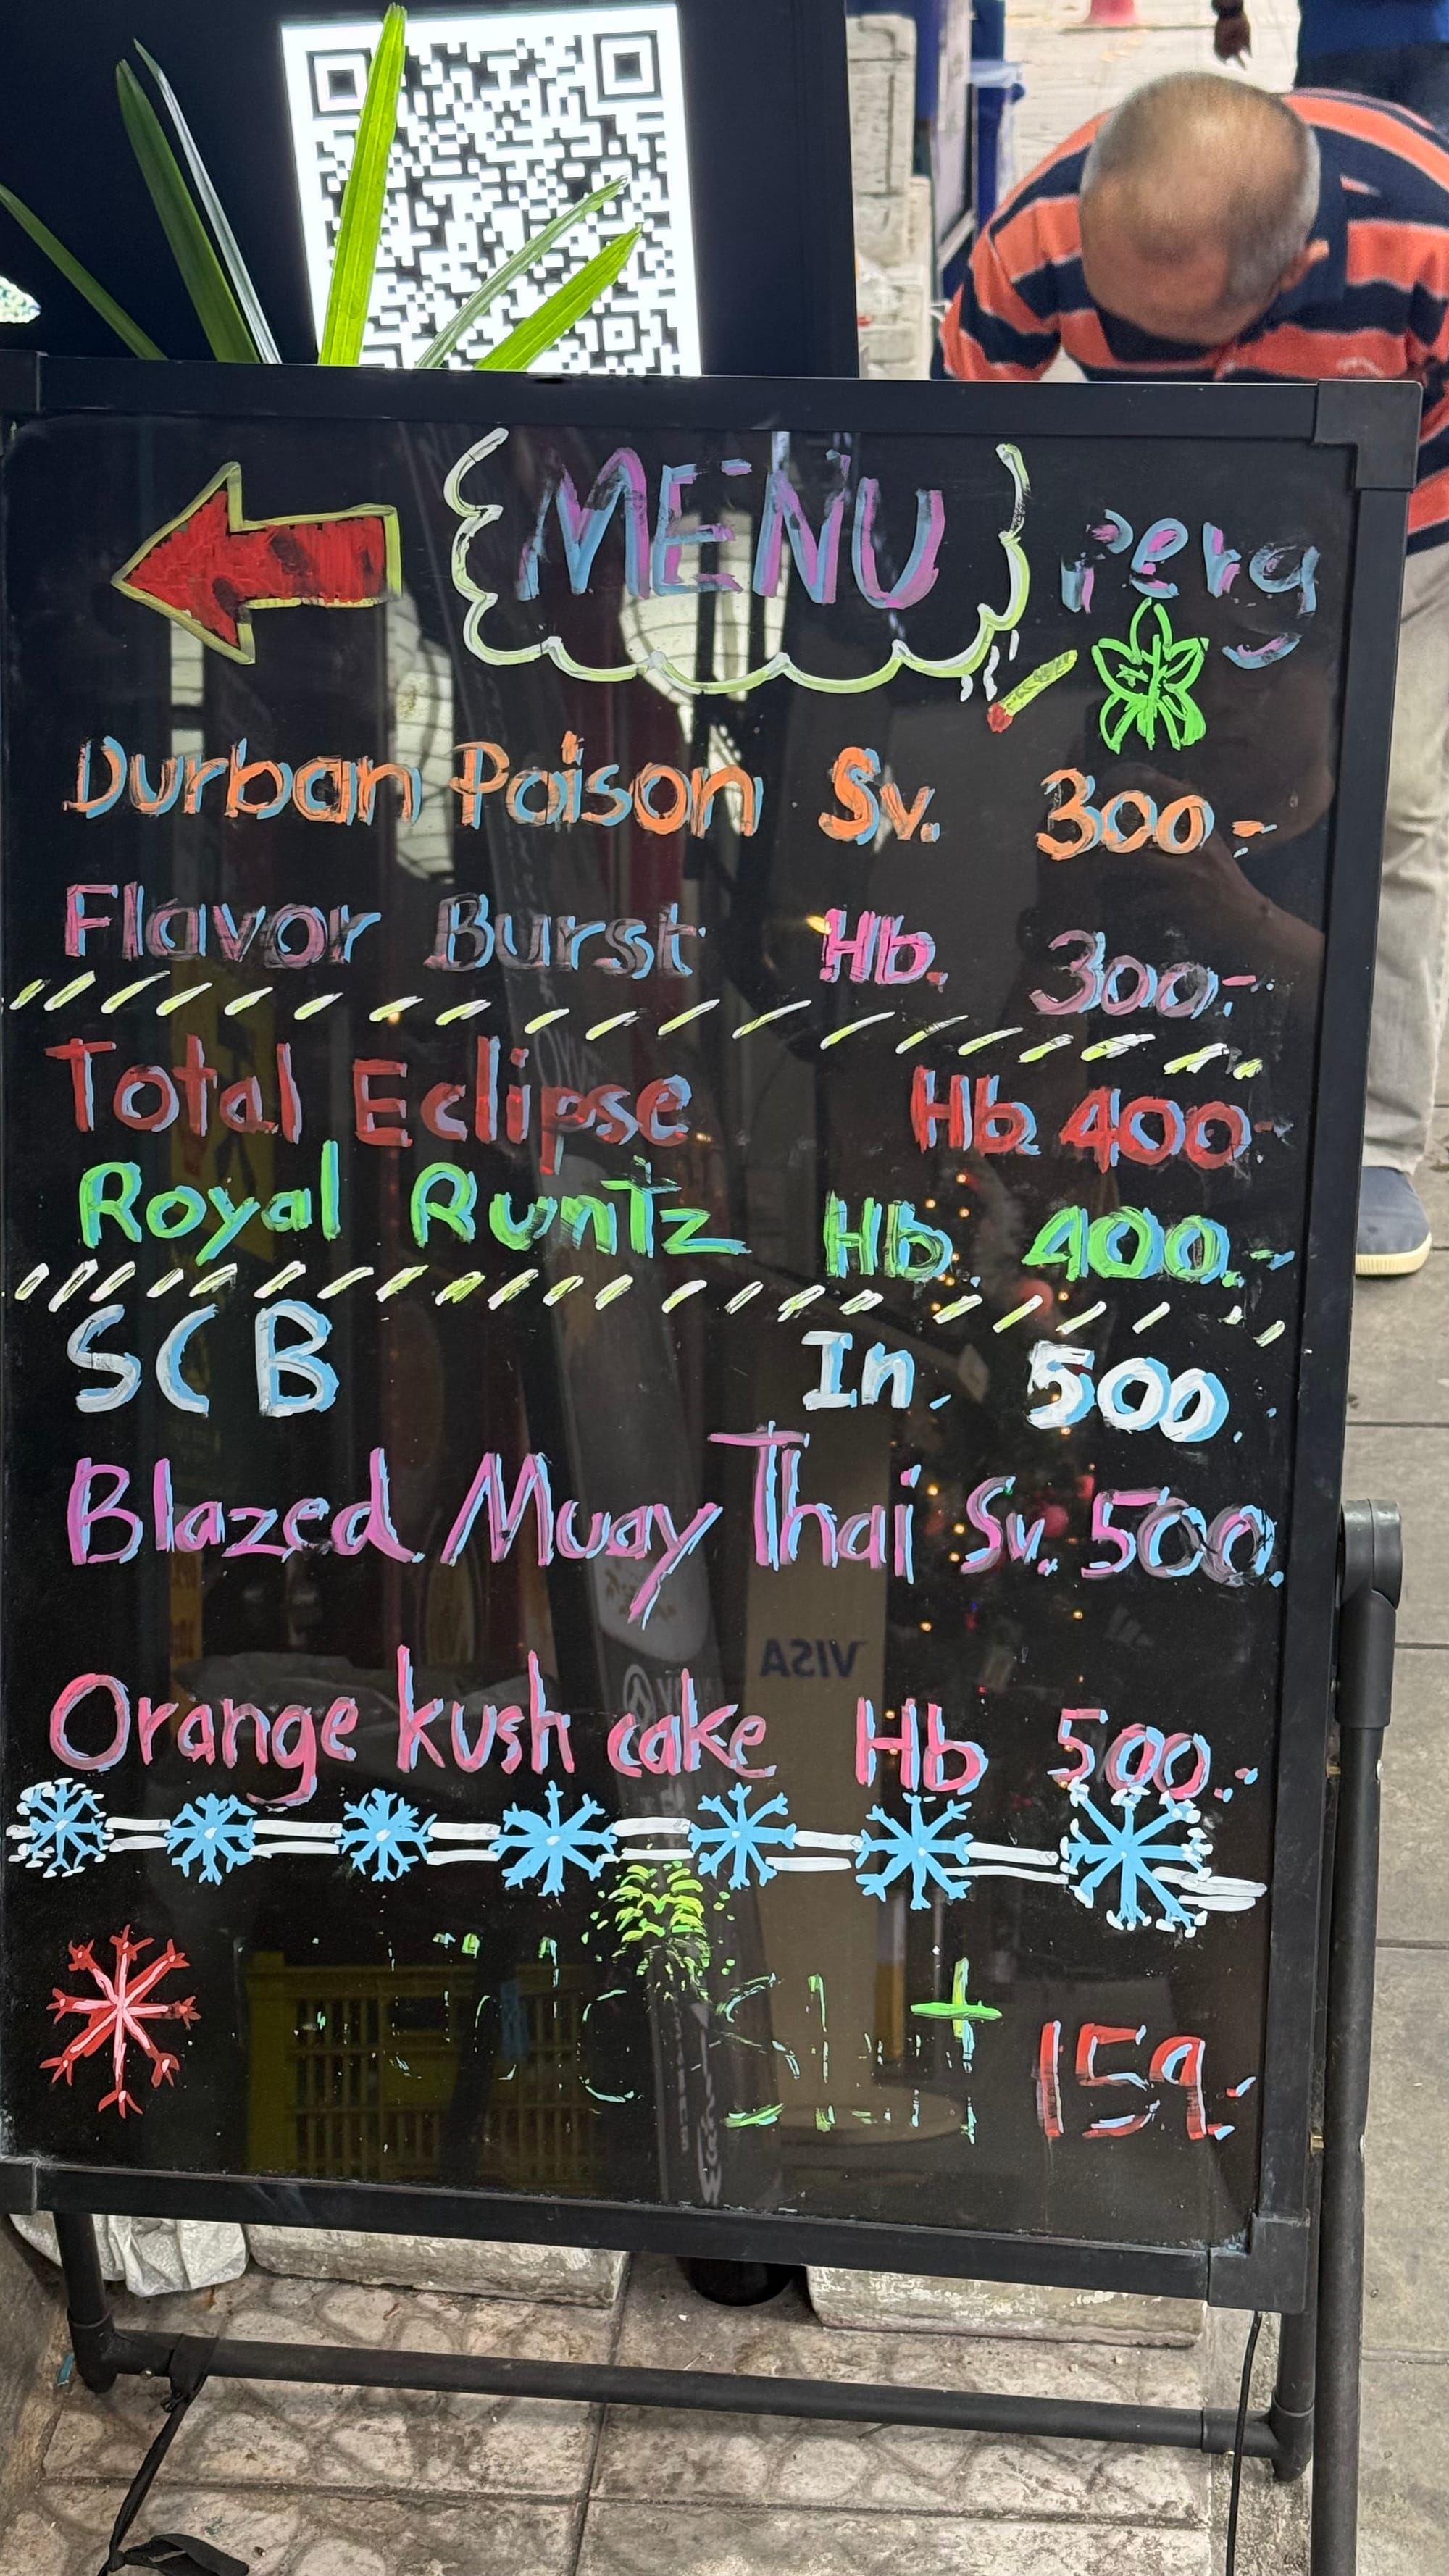 MENU Perg
Durban Poison Sv. 300.-
Flavor Burst Hb. 300.-
Total Eclipse Hb. 400.-
Royal Runtz Hb. 400.-
SCB In. 500.
Blazed Muay Thai Sv. 500.
Orange kush cake Hb 500.-
VISA
159.-